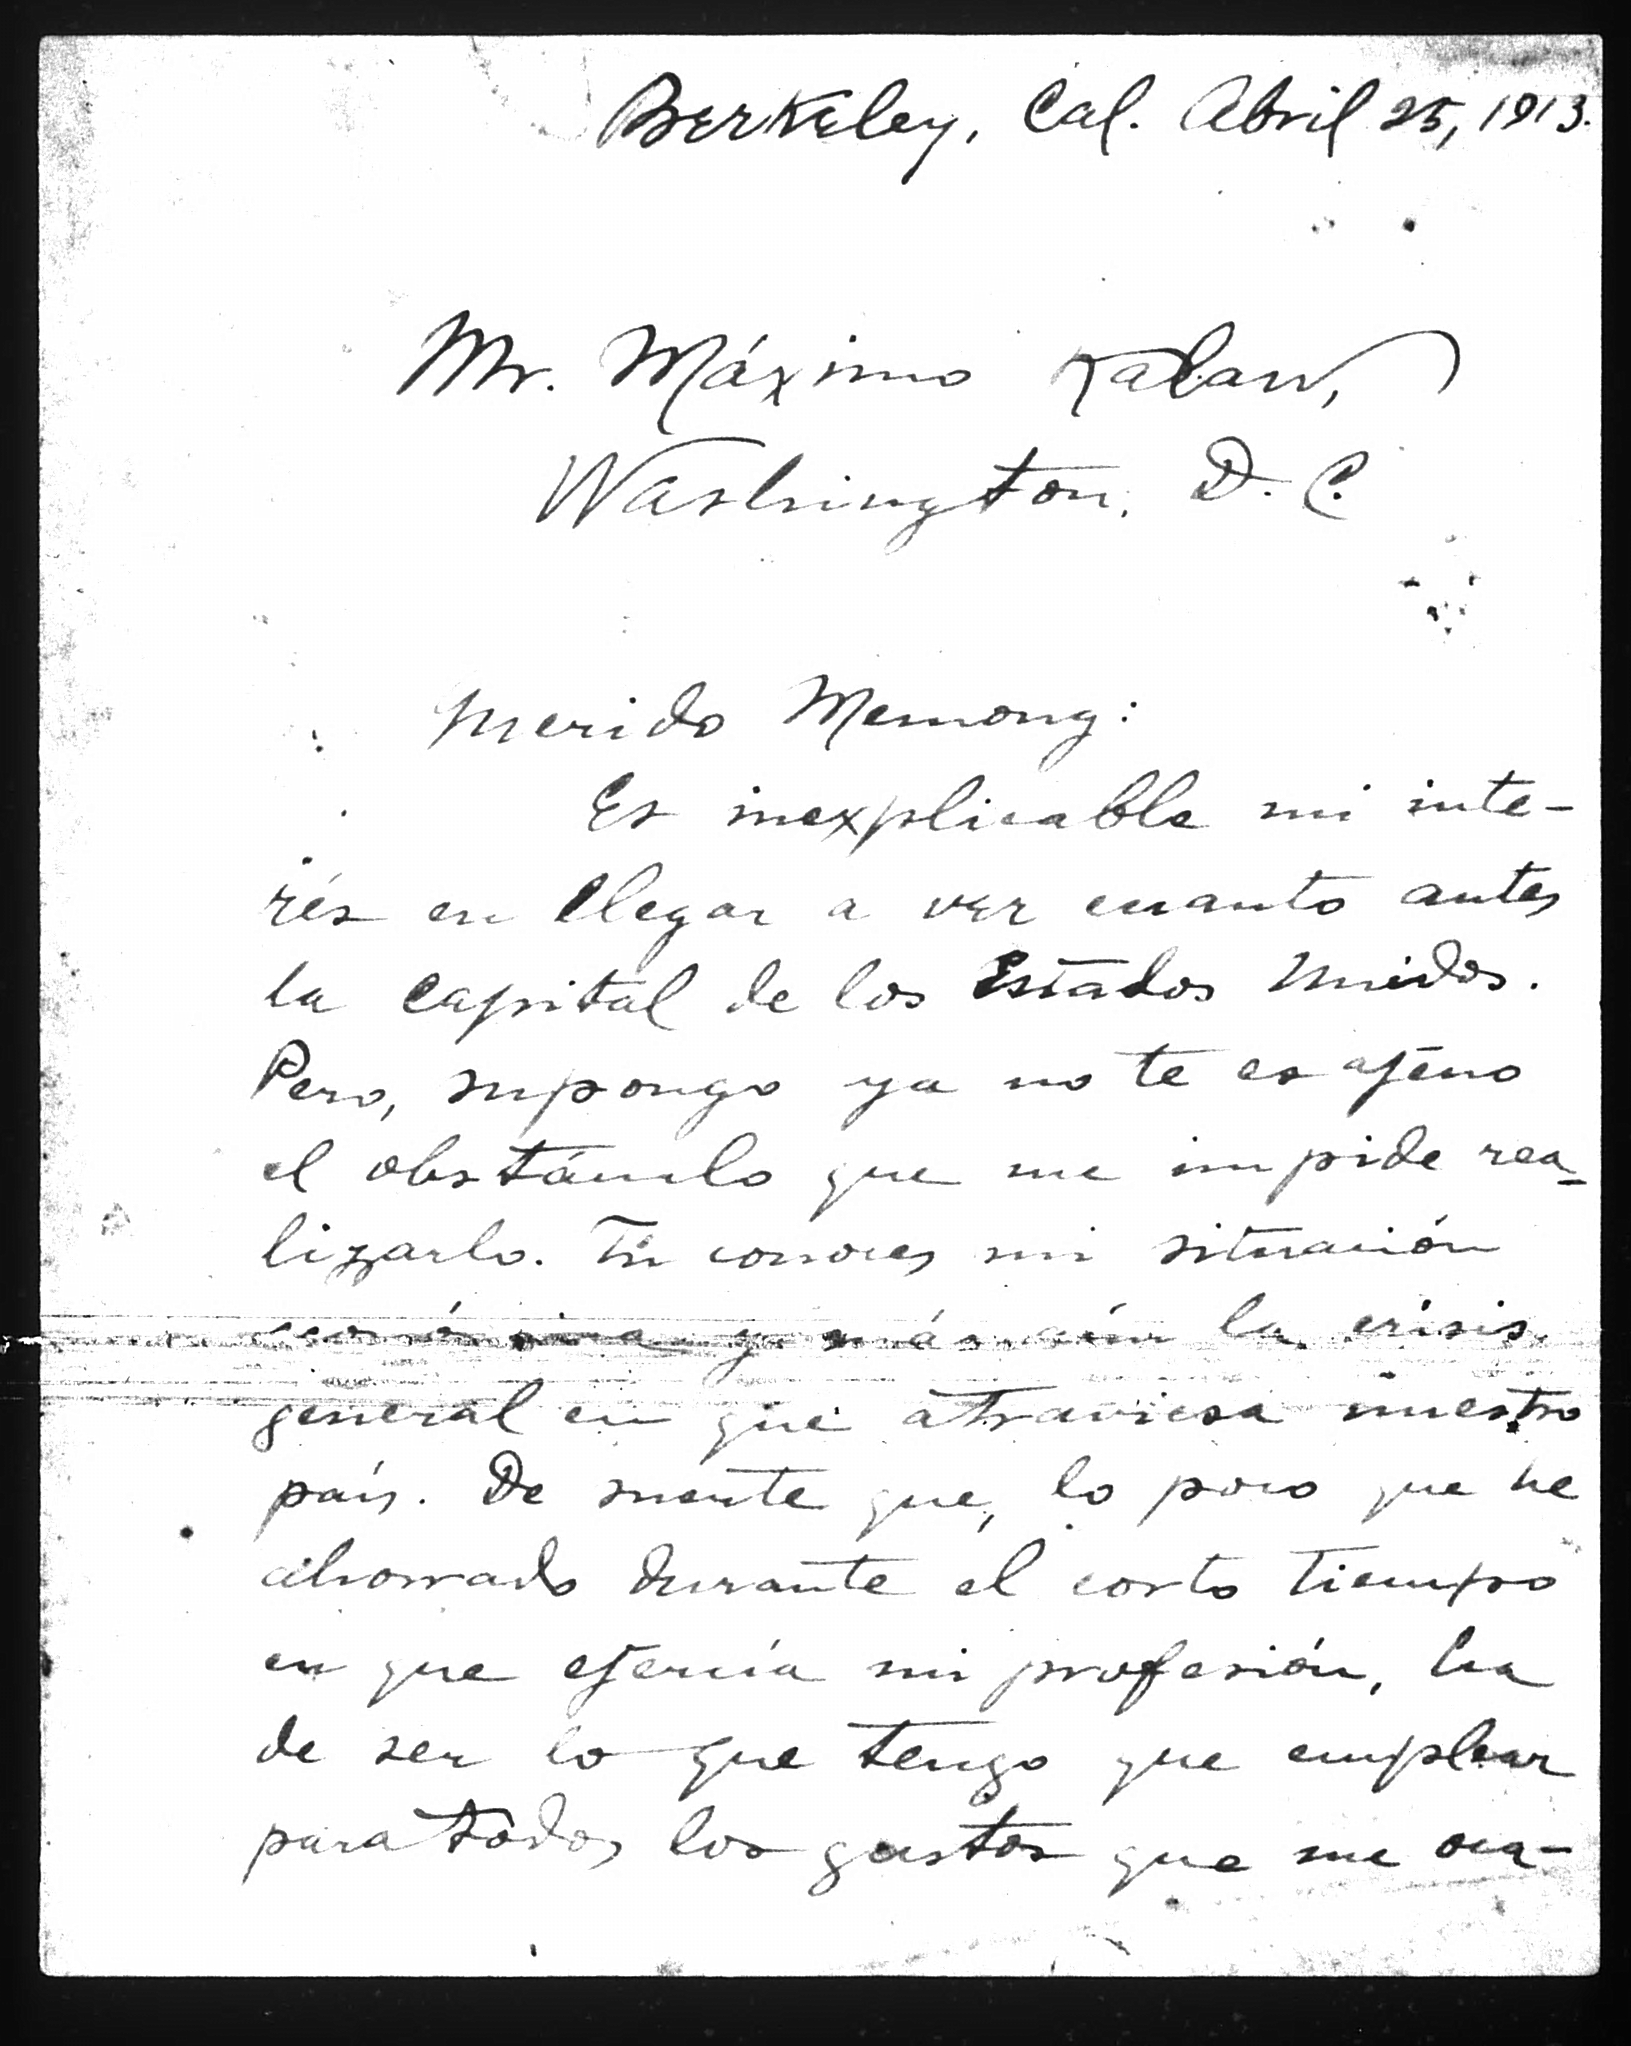 Berkeley, Cal. Abril 25, 1913.
Mr. Máximo Kalaw,
Washington, D.C.
Querido Memong:
Es inexplicable mi inte-
rés en llegar a ver cuanto antes
la capital de los Estados Unidos.
Pero, supongo ya no te es ajeno
el obstáculo que me impide rea-
lizarlo. Tú conoces mi situación
económica y más aún la crisis
general en que atraviesa nuestro
país. De suerte que, lo poco que he
ahorrado durante el corto tiempo
en que ejercía mi profesión, ha
de ser lo que tengo que emplear
para todos los gastos que me oca-